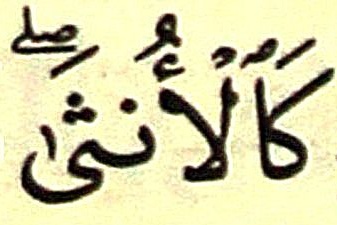 كَٱلْأُنثَىٰۖ